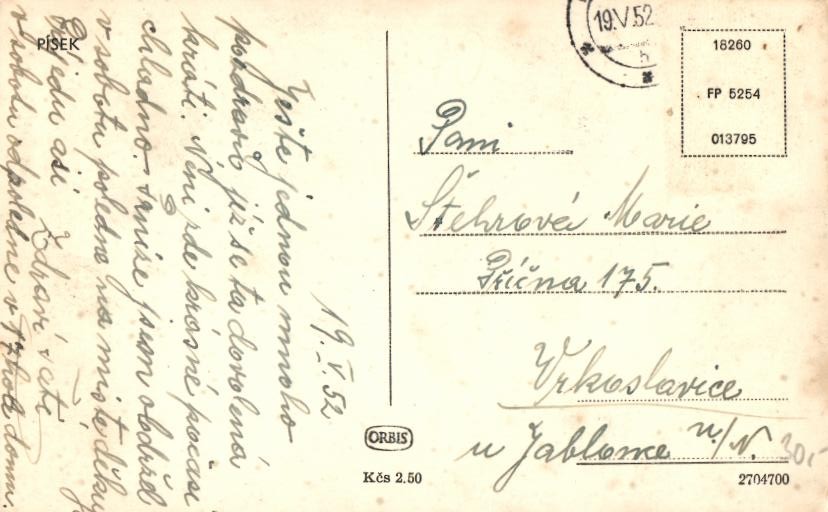 PÍSEK
19.V.52
Ještě jednou mnoho
pozdravů již se ta dovolená
krátí. Není zde krásné počasí
chladno. peníze jsem obdržel
v sobotu poledne na místě děkuji
Přijedu asi
v sobotu odpoledne v 7 hod domu.
Zdraví vás
19.V.52
18260
FP 5254
013795
Paní
Štehrová Marie
Příčná 175.
Vrkoslavice
u Jablonce n./N.
30,-
ORBIS
Kčs 2.50
2704700